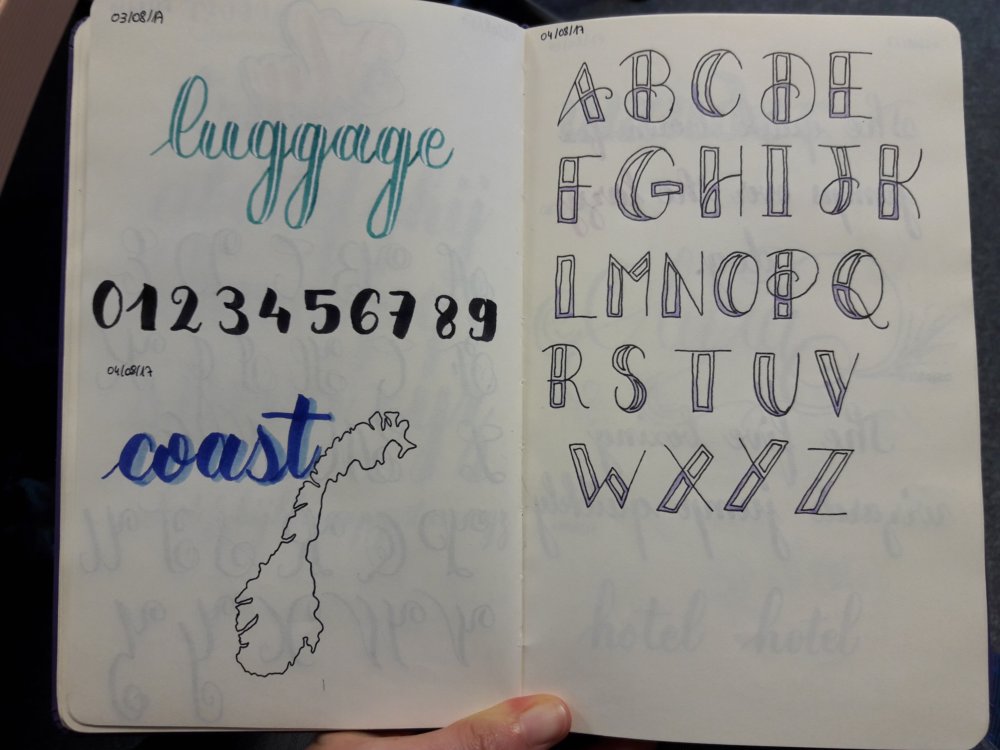 03/08/17
luggage
0123456789
04/08/17
coast
04/08/17
ABCDE
FGHIJK
LMNOPQ
RSTUV
WXYZ
hotel hotel